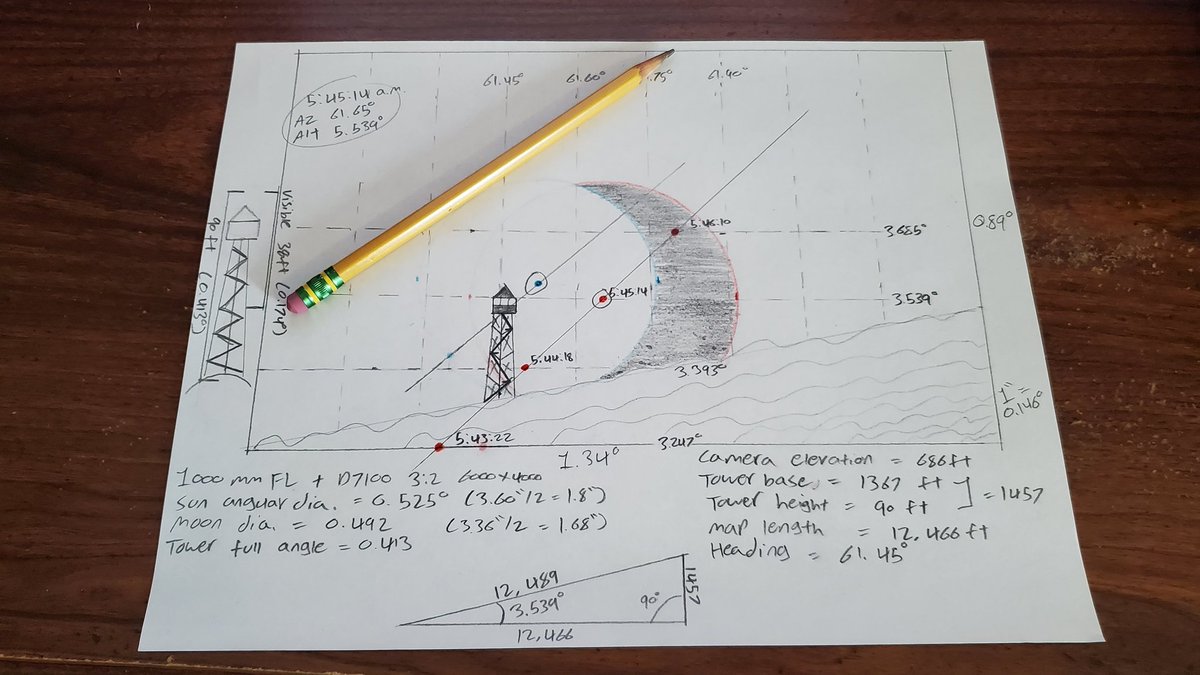 61.45° 61.60° .75° 61.90°
5:45:14 a.m.
AZ 61.65°
Alt 5.539°
90 ft (0.413°)
Visible 38ft (0.174°)
5:46:10
3.685°
0.89°
5:45:14
3.539°
5:44:18
3.393°
1" =
0.146°
5:43:22
3.247°
1.34°
1000 mm FL + D7100 3:2 6000x4000
Sun angular dia. = 0.525° (3.60"/2 = 1.8")
Moon dia. = 0.492 (3.36"/2 = 1.68")
Tower full angle = 0.413
Camera elevation = 686 ft
Tower base = 1367 ft
Tower height = 90 ft
= 1457
Map length = 12,466 ft
Heading = 61.45°
12,489
3.539°
90°
1457
12,466